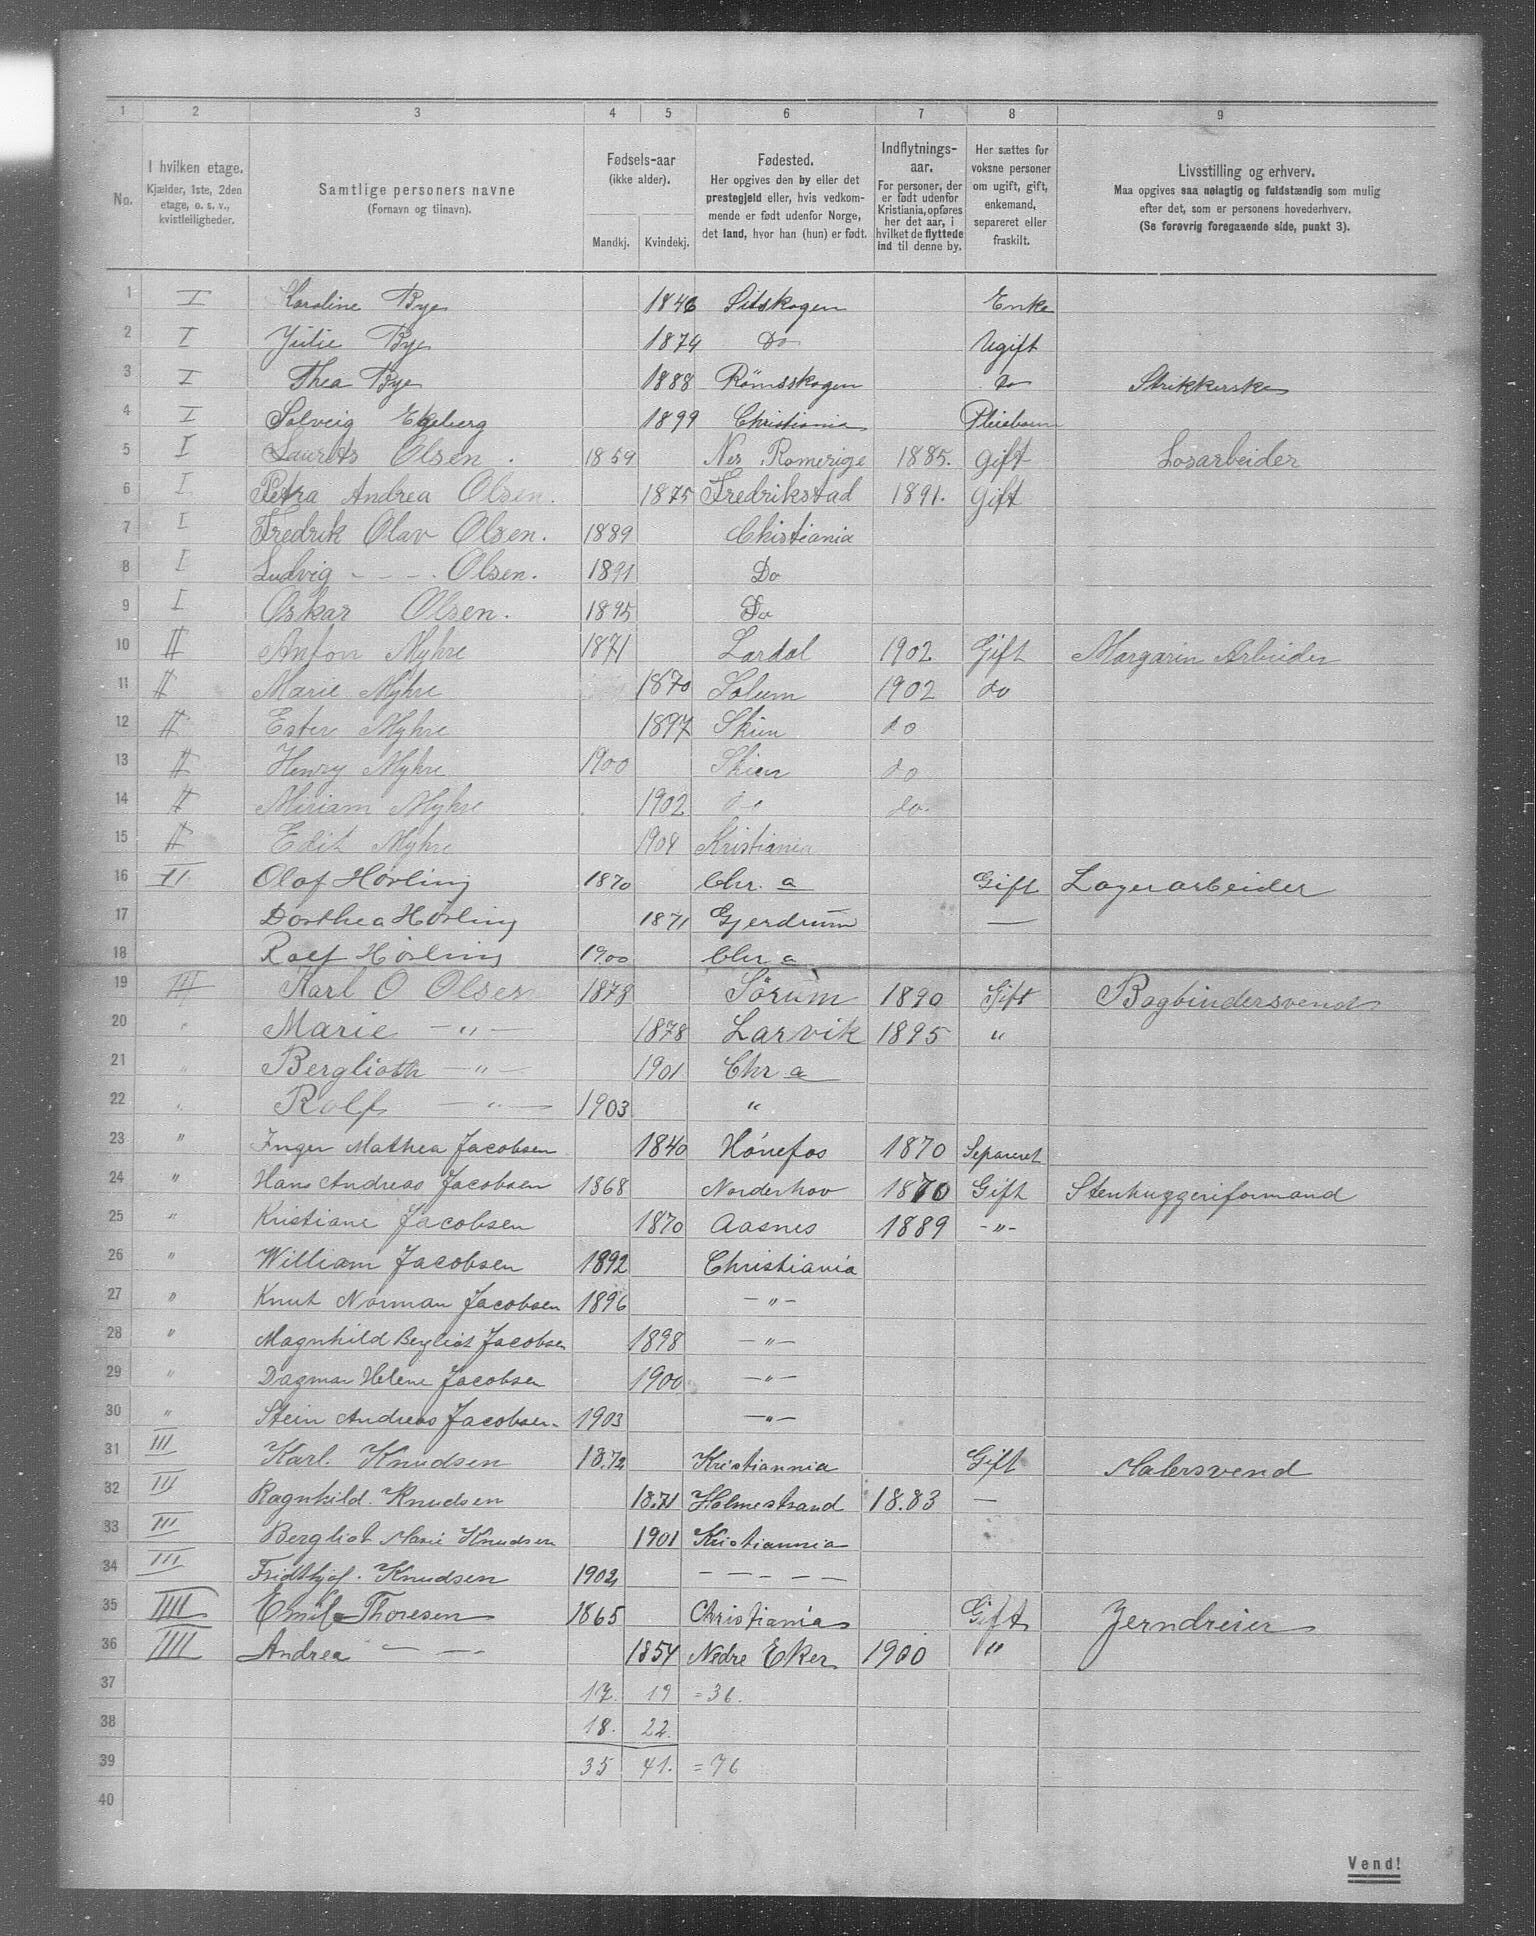 1 2 3 4 5 6 7 8 9
No.
I hvilken etage.
Kjælder, 1ste, 2den
etage, o. s. v.,
kvistleiligheder.
Samtlige personers navne
(Fornavn og tilnavn).
Fødsels-aar
(ikke alder).
Mandkj. Kvindekj.
Fødested.
Her opgives den by eller det
prestegjeld eller, hvis vedkom-
mende er født udenfor Norge,
det land, hvor han (hun) er født.
Indflytnings-
aar.
For personer, der
er født udenfor
Kristiania, opføres
her det aar, i
hvilket de flyttede
ind til denne by.
Her sættes for
voksne personer
om ugift, gift,
enkemand,
separeret eller
fraskilt.
Livsstilling og erhverv.
Maa opgives saa nøiagtig og fuldstændig som mulig
efter det, som er personens hovederhverv.
(Se forøvrig foregaaende side, punkt 3).
1 I Karoline Bye 1846 Sitskogen Enke
2 I Julie Bye 1874 Do Ugift
3 I Thea Bye 1888 Römsskogen do Strikkerske
4 I Solveig Egeberg 1899 Christiania Pleiebarn
5 I Laurits Olsen. 1859 Nes Romerige 1885. Gift Losarbeider
6 I Petra Andrea Olsen. 1875 Fredrikstad 1891. Gift
7 I Fredrik Olav Olsen. 1889 Chistiania
8 I Ludvig - - - Olsen. 1891 Do
9 I Oskar Olsen. 1895 Do
10 II Anton Myhre 1871 Lardal 1902 Gift Margarin Arbeider
11 II Marie Myhre 1870 Solum 1902 do
12 II Ester Myhre 1897 Skien do
13 II Henry Myhre 1900 Skien do
14 II Miriam Myhre 1902 do do.
15 II Edit Myhre 1904 Kristiania
16 II Olaf Hörling 1870 Chr. a Gift Lagerarbeider
17 Dorthea Hörling 1871 Gjerdrum —
18 Rolf Hörling 1900 Chr a
19 III Karl O Olsen 1878 Sörum 1890 Gift Bogbindersvend
20 " Marie —"— 1878 Larvik 1895 "
21 " Berglioth —"— 1901 Chr a
22 " Rolf —"— 1903 "
23 " Inger Mathea Jacobsen 1840 Hönefos 1870 Separeret
24 " Hans Andreas Jacobsen 1868 Norderhov 1870 Gift Stenhuggeriformand
25 " Kristiane Jacobsen 1870 Aasnes 1889 -"-
26 " William Jacobsen 1892 Christiania
27 " Knut Norman Jacobsen 1896 —"—
28 " Magnhild Bergliot Jacobsen 1898 —"—
29 " Dagmar Helene Jacobsen 1900 —"—
30 " Stein Andreas Jacobsen 1903 —"—
31 III Karl. Knudsen 18.72 Kristiannia Gift Malersvend
32 III Ragnhild. Knudsen 18.71 Holmestrand 18.83 —
33 III Bergliot Marie Knudsen 1901 Kristiannia
34 III Fridthjof. Knudsen 1902 — — — — —
35 IIII Emil Thoresen 1865 Christiania Gift Jerndreier
36 IIII Andrea — — 1854 Nedre Eker 1900 "
37 17. 19 = 36.
38 18. 22.
39 35 41. = 76
40
Vend!